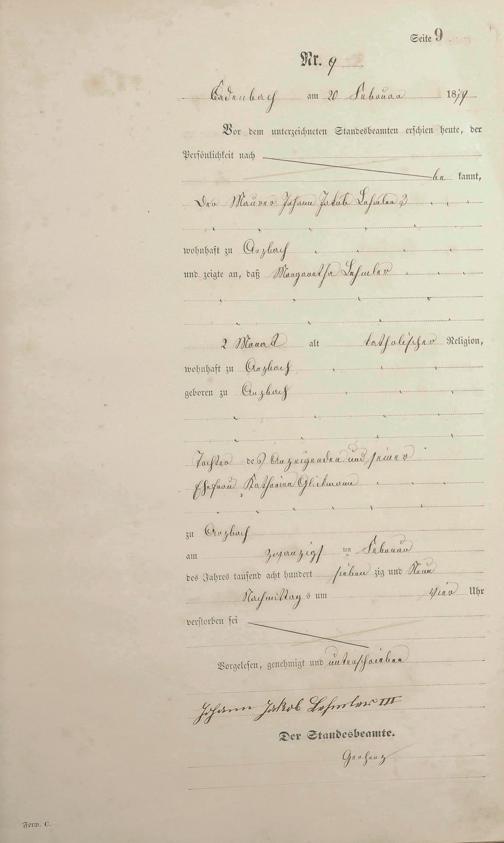 Seite 9
Nr. 9
Cadenbach am 20 Februar 1879
Vor dem unterzeichneten Standesbeamten erschien heute, der
Persönlichkeit nach
be kannt,
Der Maurer Johann Jakob Lehmler 3
wohnhaft zu Arzbach
und zeigte an, daß Margaretha Lehmler
2 Monat alt katholischer Religion,
wohnhaft zu Arzbach
geboren zu Arzbach
Tochter des Anzeigenden und seiner
Ehefrau Katharina
zu Arzbach
am zwanzigsten Februar
des Jahres tausend acht hundert sieben zig und Neun
Nachmittag s um vier Uhr
verstorben sei
Vorgelesen, genehmigt und unterschrieben
Johann Jakob Lehmler III
Der Standesbeamte.
Form. C.